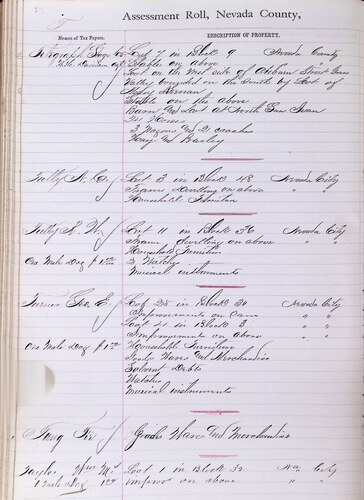 Assessment Roll, Nevada County,
T
Names of Tax Payers.
DESCRIPTION OF PROPERTY.
Telegraph Stage Co Lot 7 in Block 9 Nevada County
Stable on above
Lot on the West side of Auburn Street Grass
Valley bounded on the South by Lot of
Stable on the above
Barn and Lot at North San Juan
24 Horses
3 Wagons and 2 coaches
Hay and Barley
Lot 3 in Block 48 Nevada City
Frame Dwelling on above " "
Household Furniture
W. Lot 11 in Block 36 Nevada City
Frame dwelling on above " "
Household Furniture
One Male Dog 2 Watches
Musical instruments
Turner Geo. E. Lot 25 in Block 30 Nevada City
Improvements on same " "
Lot 21 in Block 3 " "
Improvements on above " "
One Male Dog Household Furniture
Goods Wares and Merchandise
Solvent Debts
Watches
Musical instruments
Goods Wares and Merchandise
Taylor, Wm Mc Lot 1 in Block 32 Nev City
1 Male Dog Improvs on above " "